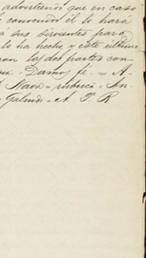 advirtiendo que en caso
convenido él lo hará
sus sirvientes para
lo ha hecho, y este último
con las dos partes con
Damos fe. = A.
Nava = rubrica = An
Galindo = A. P. R